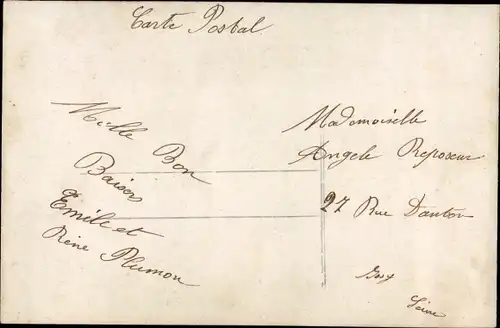 Carte Postal
Mille Bon
Baisers
Emile et
Réne Plumon
Mademoiselle
Angele Reposeur
27 Rue Danton
Issy
Seine